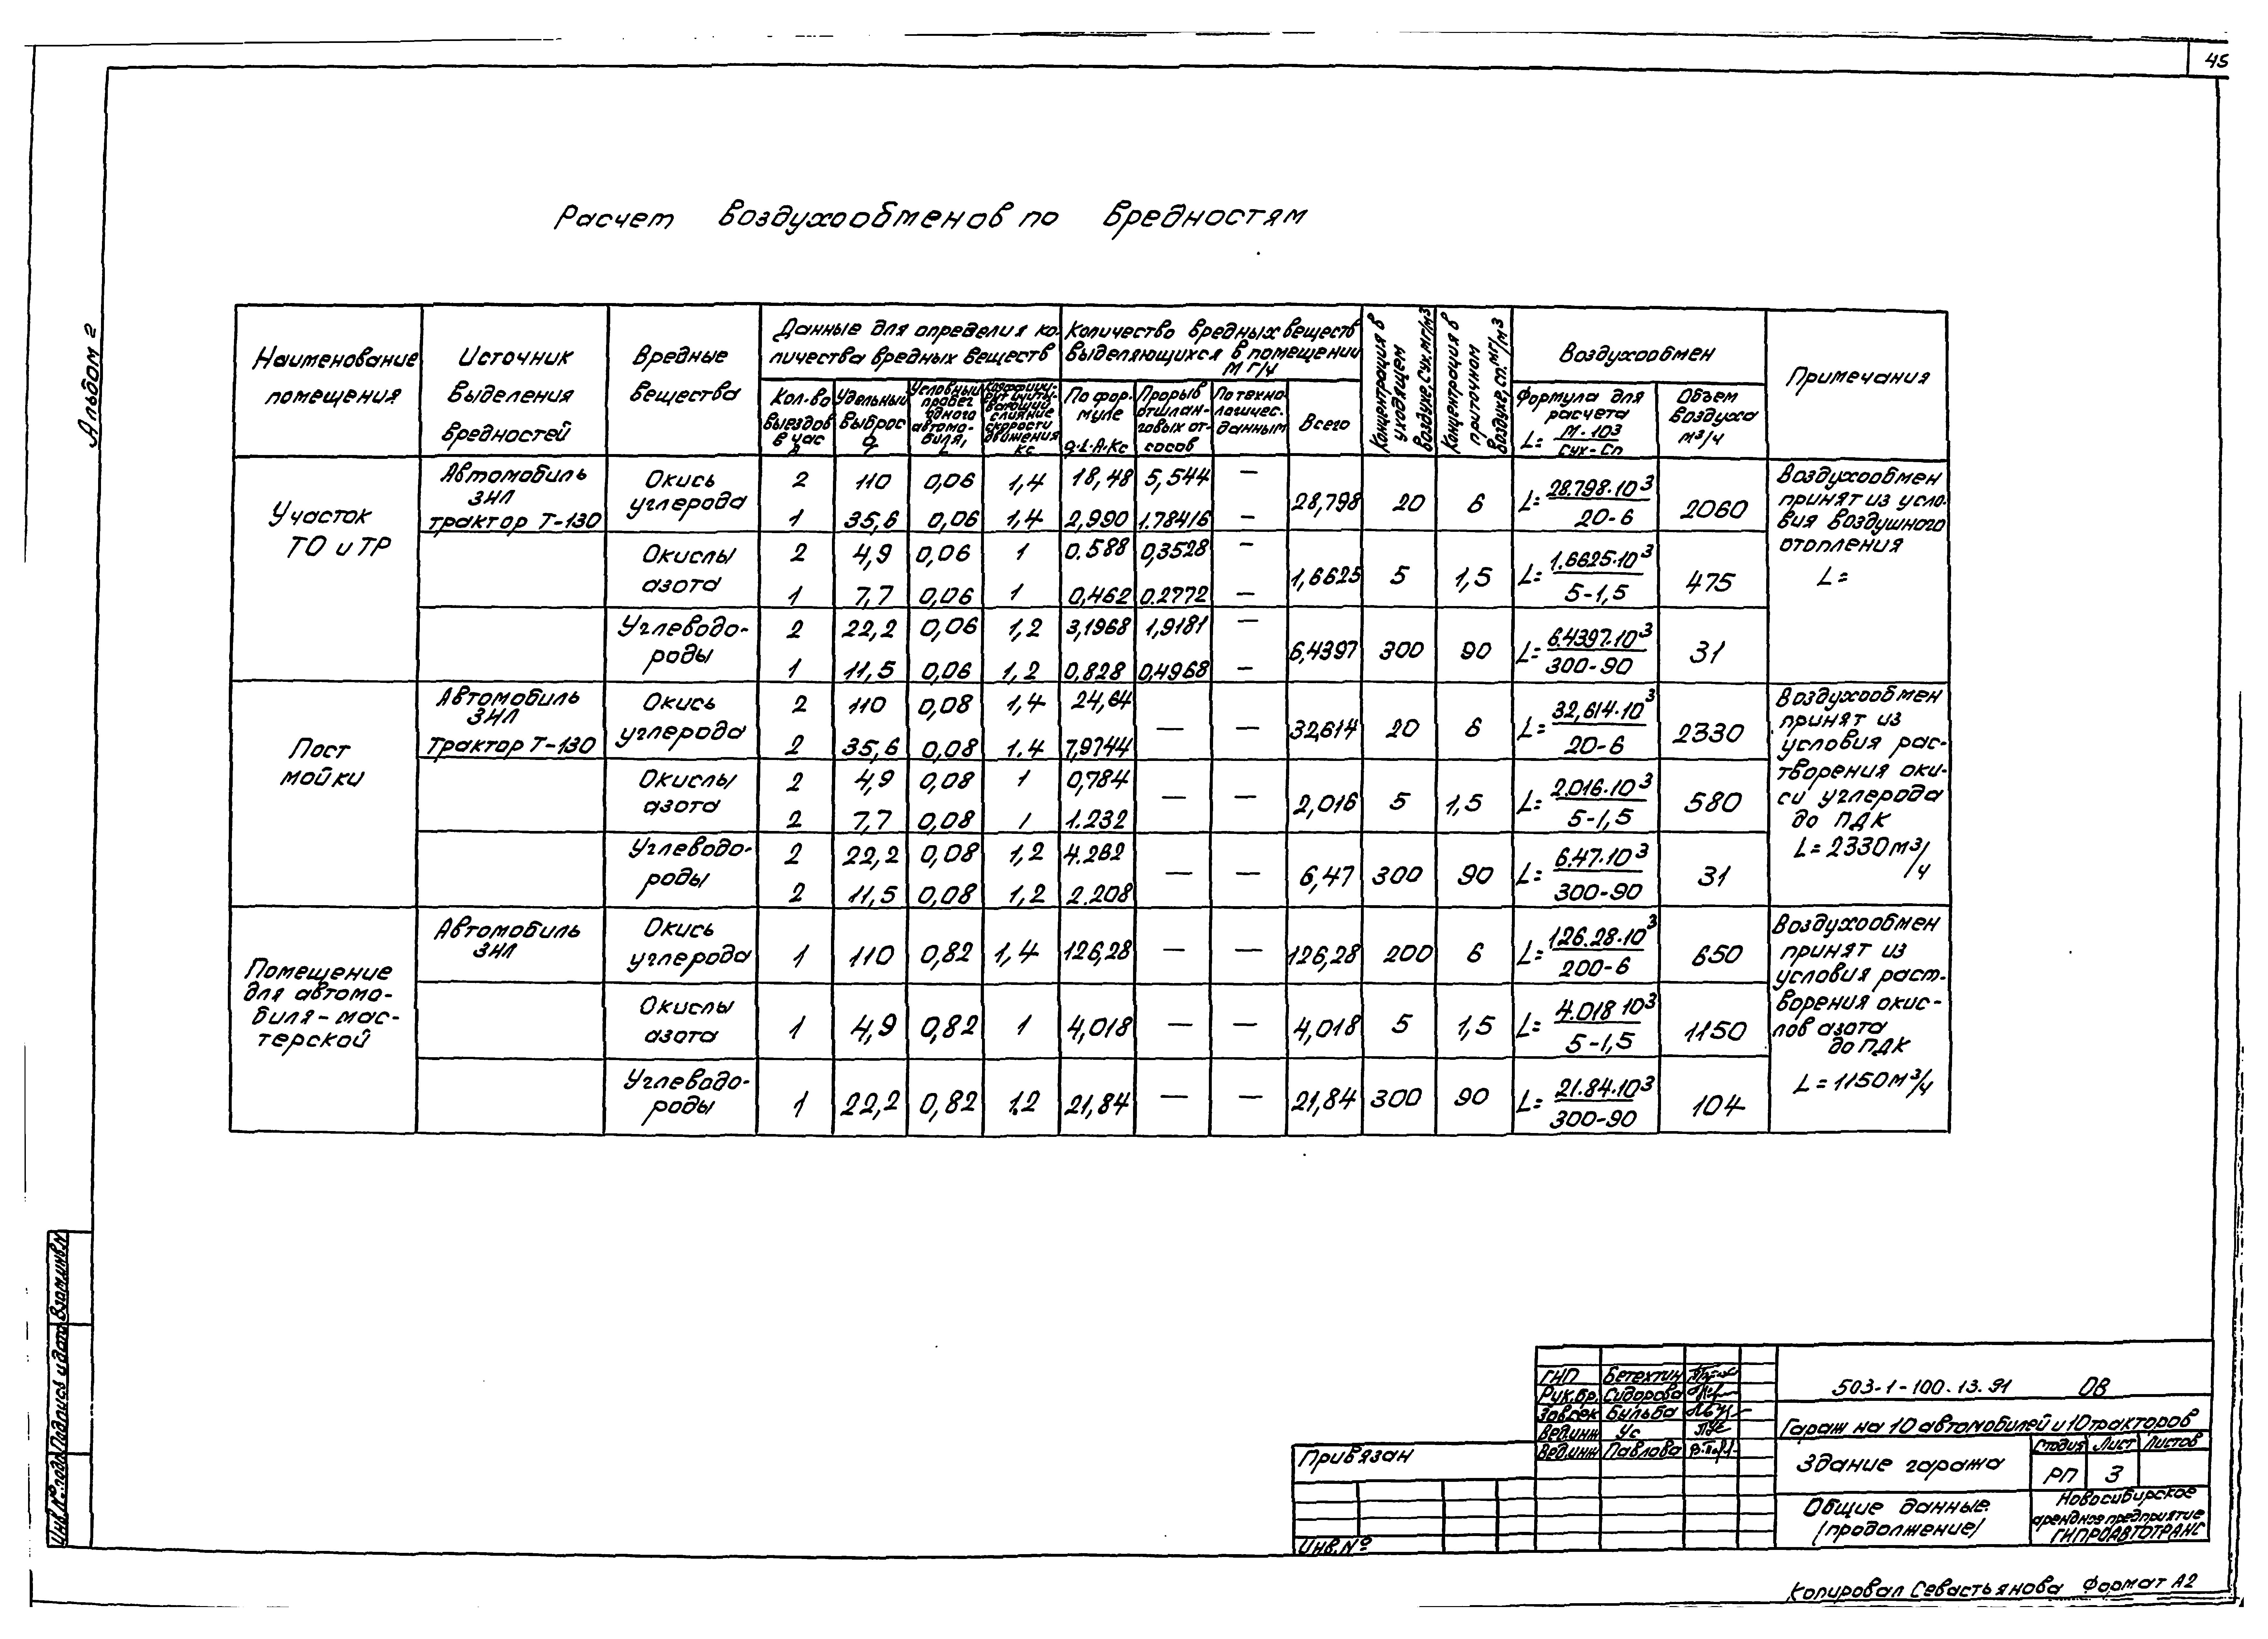 45
Альбом 2
Расчет воздухообменов по вредностям
Наименование
помещения
Источник
выделения
вредностей
Вредные
вещества
Данные для определия ко-
личества вредных веществ
Кол-во
выездов
в час
А
Удельный
выброс
q
Условный
пробег
одного
автомо-
биля,
L
скорости
движения
Кс
Количество вредных веществ
выделяющихся в помещении
М г/ч
По фор-
муле
q·L·А·Кс
Прорыв
от шлан-
говых от-
сосов
По техно-
логичес.
данным
Всего
Концентрация в
уходящем
воздухе, Сух. мг/м3
Концентрация в
приточном
воздухе, Сп. мг/м3
Воздухообмен
Формула для
расчета
L= М·10³ / Сух-Сп
Объем
воздуха
м³/ч
Примечания
Участок
ТО и ТР
Автомобиль
ЗИЛ
трактор Т-130
Окись
углерода
2 110 0,06 1,4 18,48 5,544 —
1 35,6 0,06 1,4 2,990 1.78416 —
28,798 20 6 L= 28.798·10³ / 20-6 2060
Окислы
азота
2 4,9 0,06 1 0.588 0,3528 —
1 7,7 0,06 1 0,462 0.2772 —
1,6625 5 1,5 L= 1.6625·10³ / 5-1,5 475
Углеводо-
роды
2 22,2 0,06 1,2 3,1968 1,9181 —
1 11,5 0,06 1,2 0,828 0,4968 —
6,4397 300 90 L= 6.4397·10³ / 300-90 31
Воздухообмен
принят из усло-
вия воздушного
отопления
L=
Пост
мойки
Автомобиль
ЗИЛ
Трактор Т-130
Окись
углерода
2 110 0,08 1,4 24,64
2 35,6 0,08 1.4 7,9744
— — 32,614 20 6 L= 32,614·10³ / 20-6 2330
Окислы
азота
2 4,9 0,08 1 0,784
2 7,7 0,08 1 1.232
— — 2,016 5 1,5 L= 2.016·10³ / 5-1,5 580
Углеводо-
роды
2 22,2 0,08 1,2 4.262
2 11,5 0,08 1,2 2.208
— — 6,47 300 90 L= 6.47·10³ / 300-90 31
Воздухообмен
принят из
условия рас-
творения оки-
си углерода
до ПДК
L= 2330 м³/ч
Помещение
для автомо-
биля-мас-
терской
Автомобиль
ЗИЛ
Окись
углерода
1 110 0,82 1,4 126,28 — — 126,28 200 6 L= 126.28·10³ / 200-6 650
Окислы
азота
1 4,9 0,82 1 4,018 — — 4,018 5 1,5 L= 4.018 10³ / 5-1,5 1150
Углеводо-
роды
1 22,2 0,82 1.2 21,84 — — 21,84 300 90 L= 21.84·10³ / 300-90 104
Воздухообмен
принят из
условия раст-
ворения окис-
лов азота
до ПДК
L=1150 м³/ч
Взам.инв.№
Подпись и дата
Инв.№ подл
ГИП Бетехтин
Рук.бр. Сидорова
Завсек Бульба
Вед.инж Ус
Вед.инж Павлова
Привязан
Инв.№
503-1-100.13.91 ОВ
Гараж на 10 автомобилей и 10 тракторов
Здание гаража
Стадия Лист Листов
РП 3
Общие данные
(продолжение)
Новосибирское
арендное предприятие
ГИПРОАВТОТРАНС
Копировал Севастьянова Формат А2